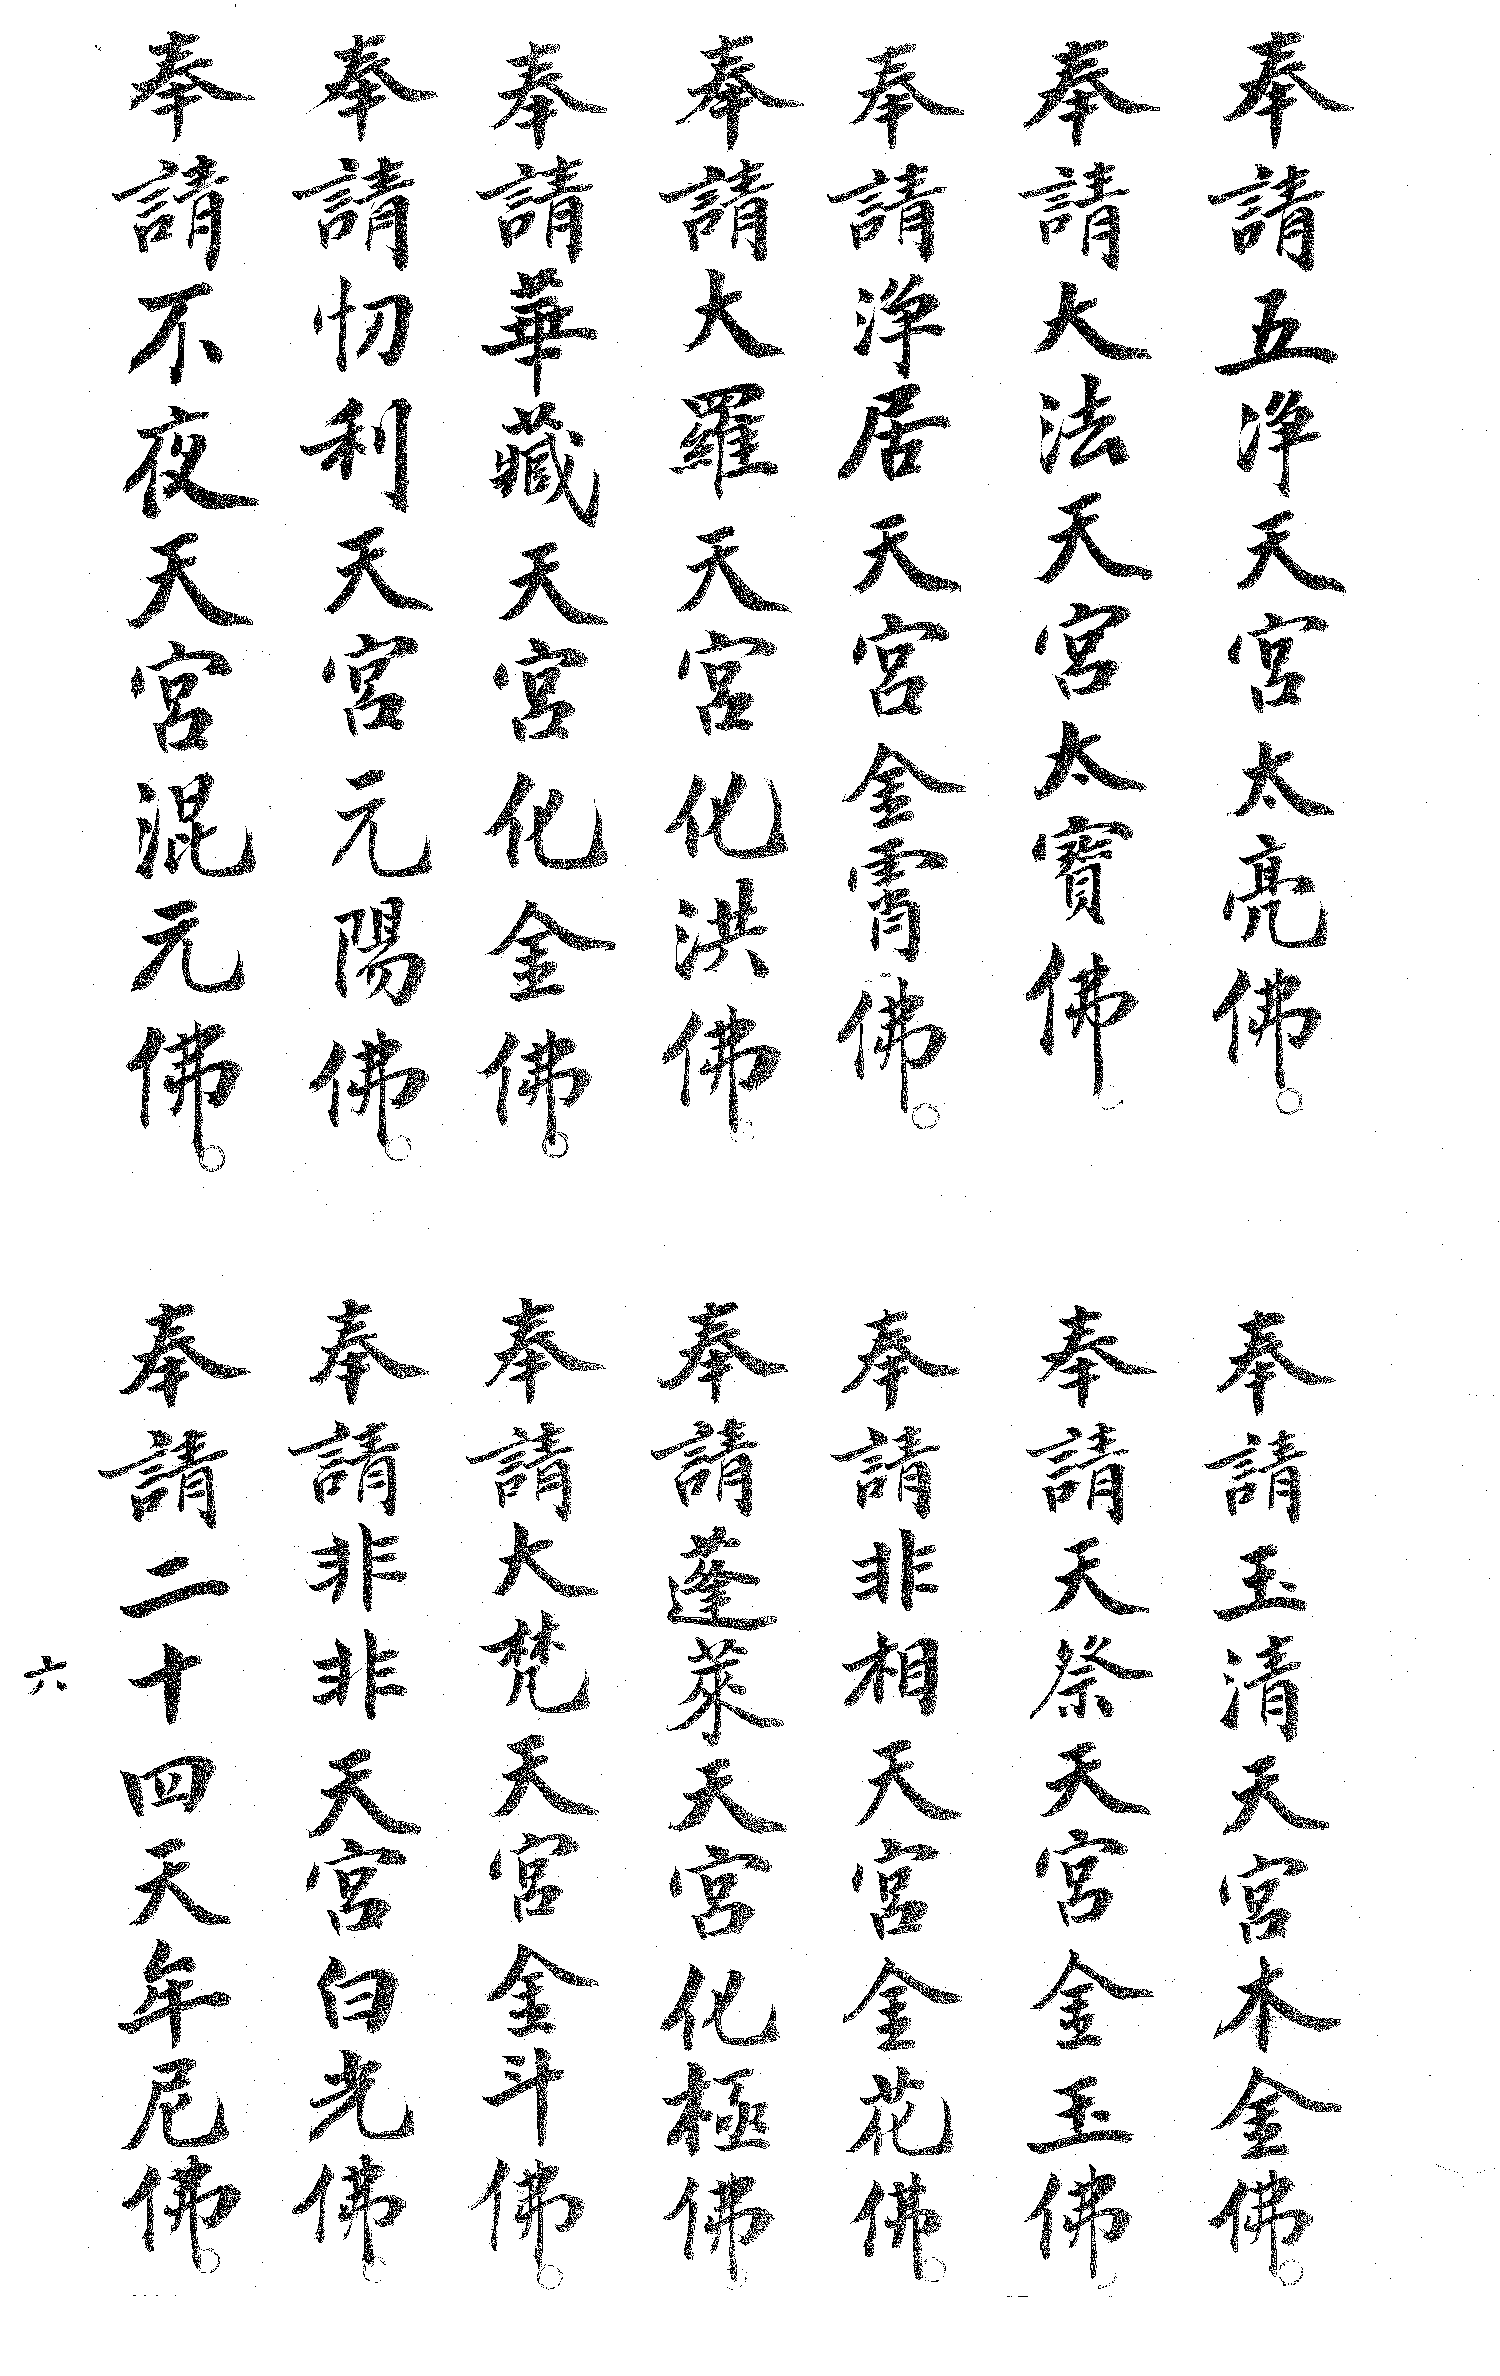 奉請五淨天宮太亮佛。
奉請大法天宮太寶佛。
奉請淨居天宮金霄佛。
奉請大羅天宮化洪佛。
奉請華藏天宮化金佛。
奉請忉利天宮元陽佛。
奉請不夜天宮混元佛。
奉請玉清天宮木金佛。
奉請天祭天宮金玉佛。
奉請非相天宮金花佛。
奉請蓬萊天宮化極佛。
奉請大梵天宮金斗佛。
奉請非非天宮白光佛。
奉請二十四天牟尼佛。
六